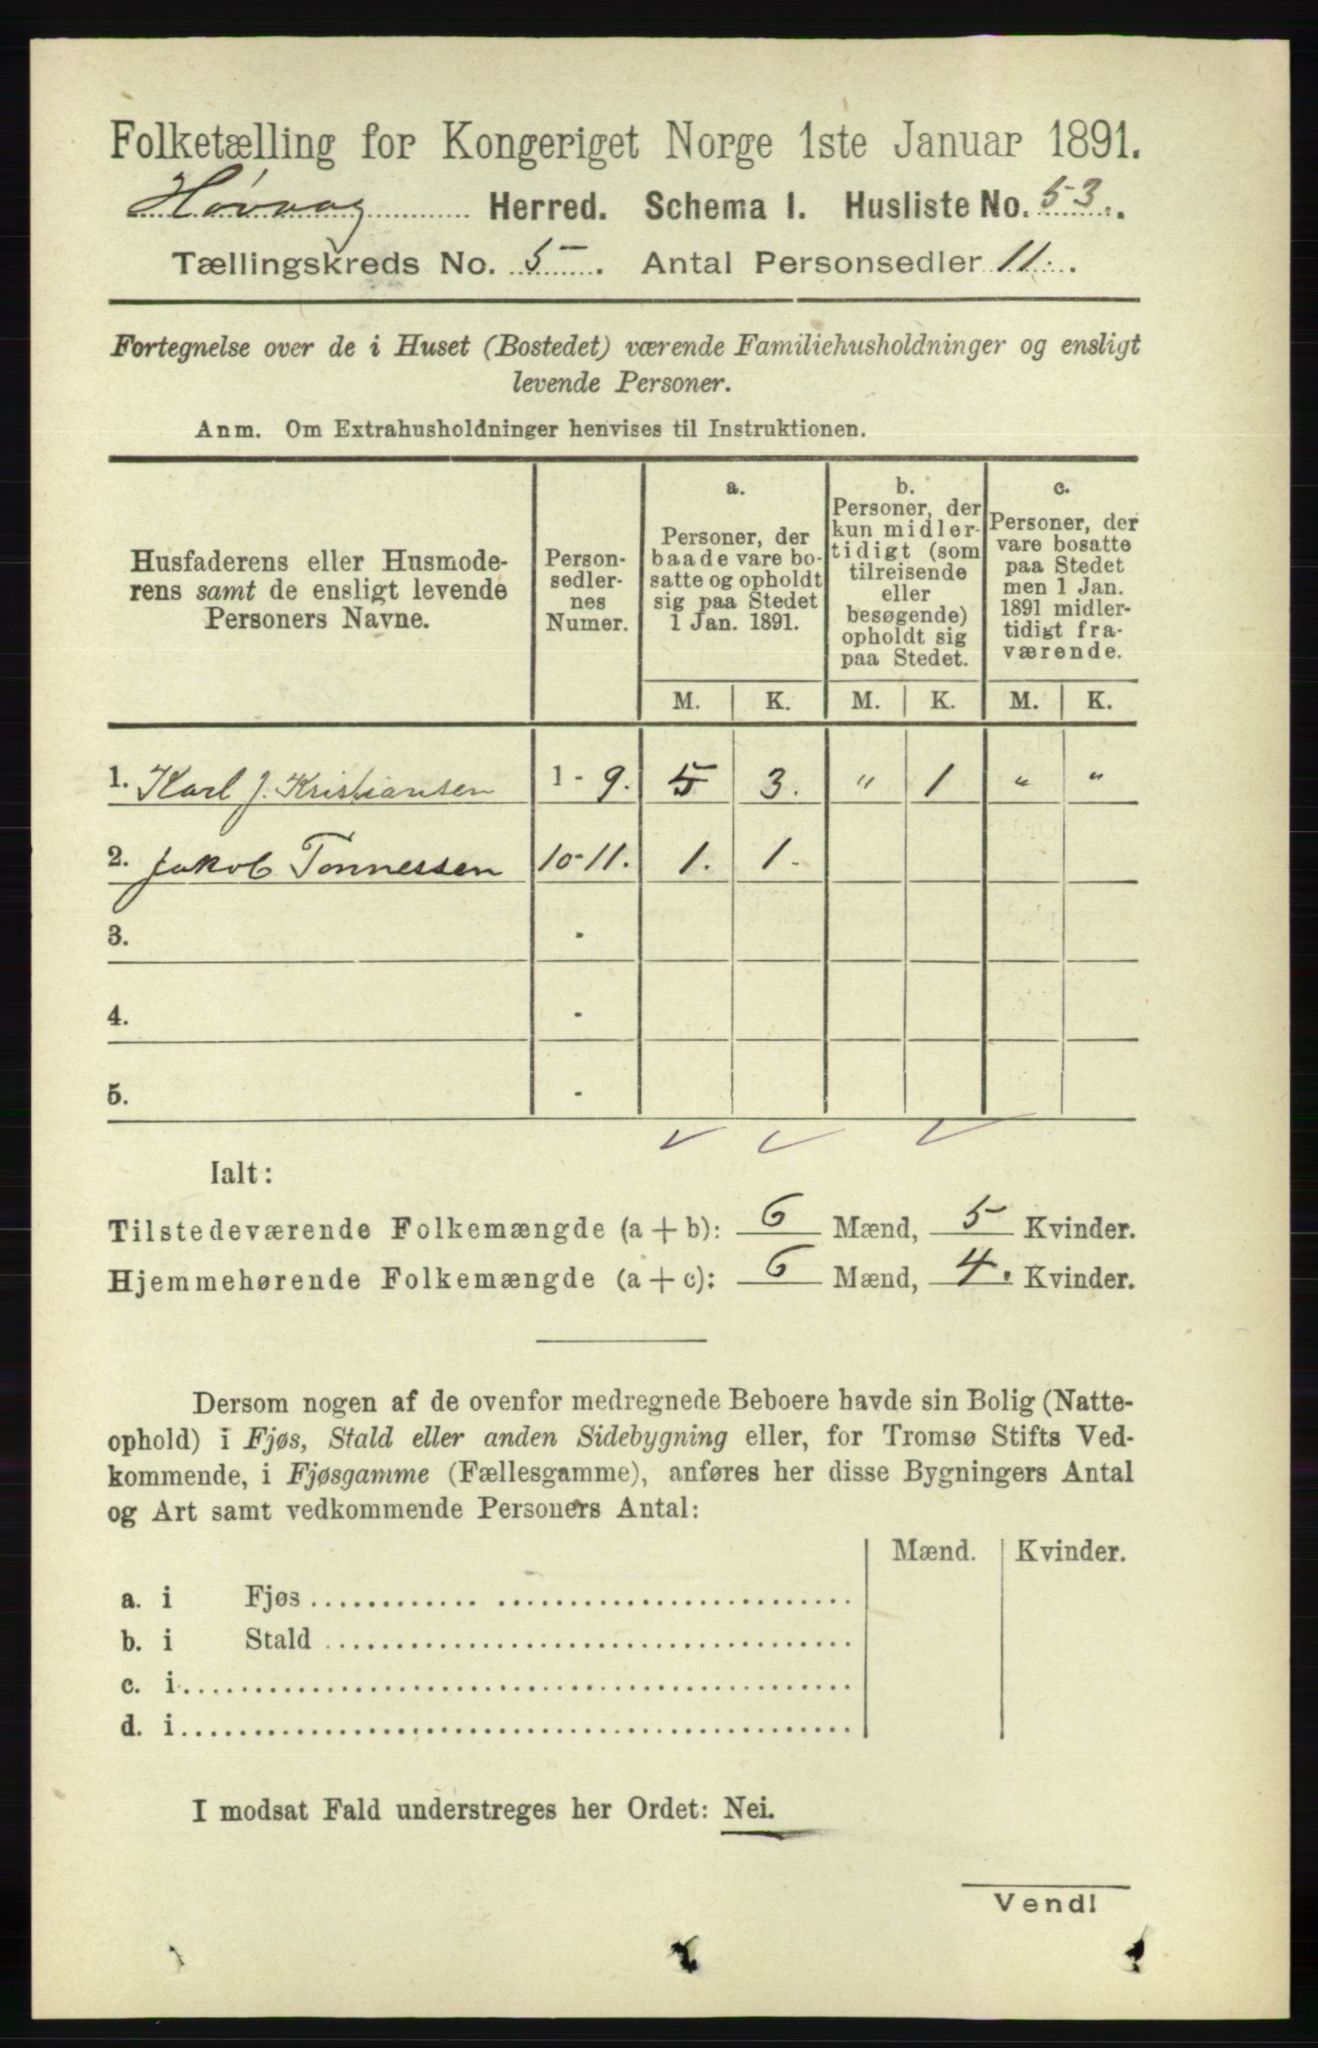 Folketælling for Kongeriget Norge 1ste Januar 1891.
Høvaag Herred. Schema I. Husliste No. 53.
Tællingskreds No. 5. Antal Personsedler 11.
Fortegnelse over de i Huset (Bostedet) værende Familiehusholdninger og ensligt
levende Personer.
Anm. Om Extrahusholdninger henvises til Instruktionen.
Husfaderens eller Husmoderens samt de ensligt levende Personers Navne.
Person-
sedler-
nes
Numer.
a.
Personer, der
baade vare bo-
satte og opholdt
sig paa Stedet
1 Jan. 1891.
b.
Personer, der
kun midler-
tidigt (som
tilreisende
eller
besøgende)
opholdt sig
paa Stedet.
c.
Personer, der
vare bosatte
paa Stedet
men 1 Jan.
1891 midler-
tidigt fra-
værende.
M. K. M. K. M. K.
1. Karl J. Kristiansen 1 - 9. 5 3. " 1 " "
2. Jakob Tonnessen 10-11. 1. 1.
3. -
4. -
5. -
Ialt:
Tilstedeværende Folkemængde (a + b): 6 Mænd, 5 Kvinder.
Hjemmehørende Folkemængde (a + c): 6 Mænd, 4. Kvinder.
Dersom nogen af de ovenfor medregnede Beboere havde sin Bolig (Natte-
ophold) i Fjøs, Stald eller anden Sidebygning eller, for Tromsø Stifts Ved-
kommende, i Fjøsgamme (Fællesgamme), anføres her disse Bygningers Antal
og Art samt vedkommende Personers Antal:
Mænd. Kvinder.
a. i Fjøs
b. i Stald
c. i
d. i
I modsat Fald understreges her Ordet: Nei.
Vend!